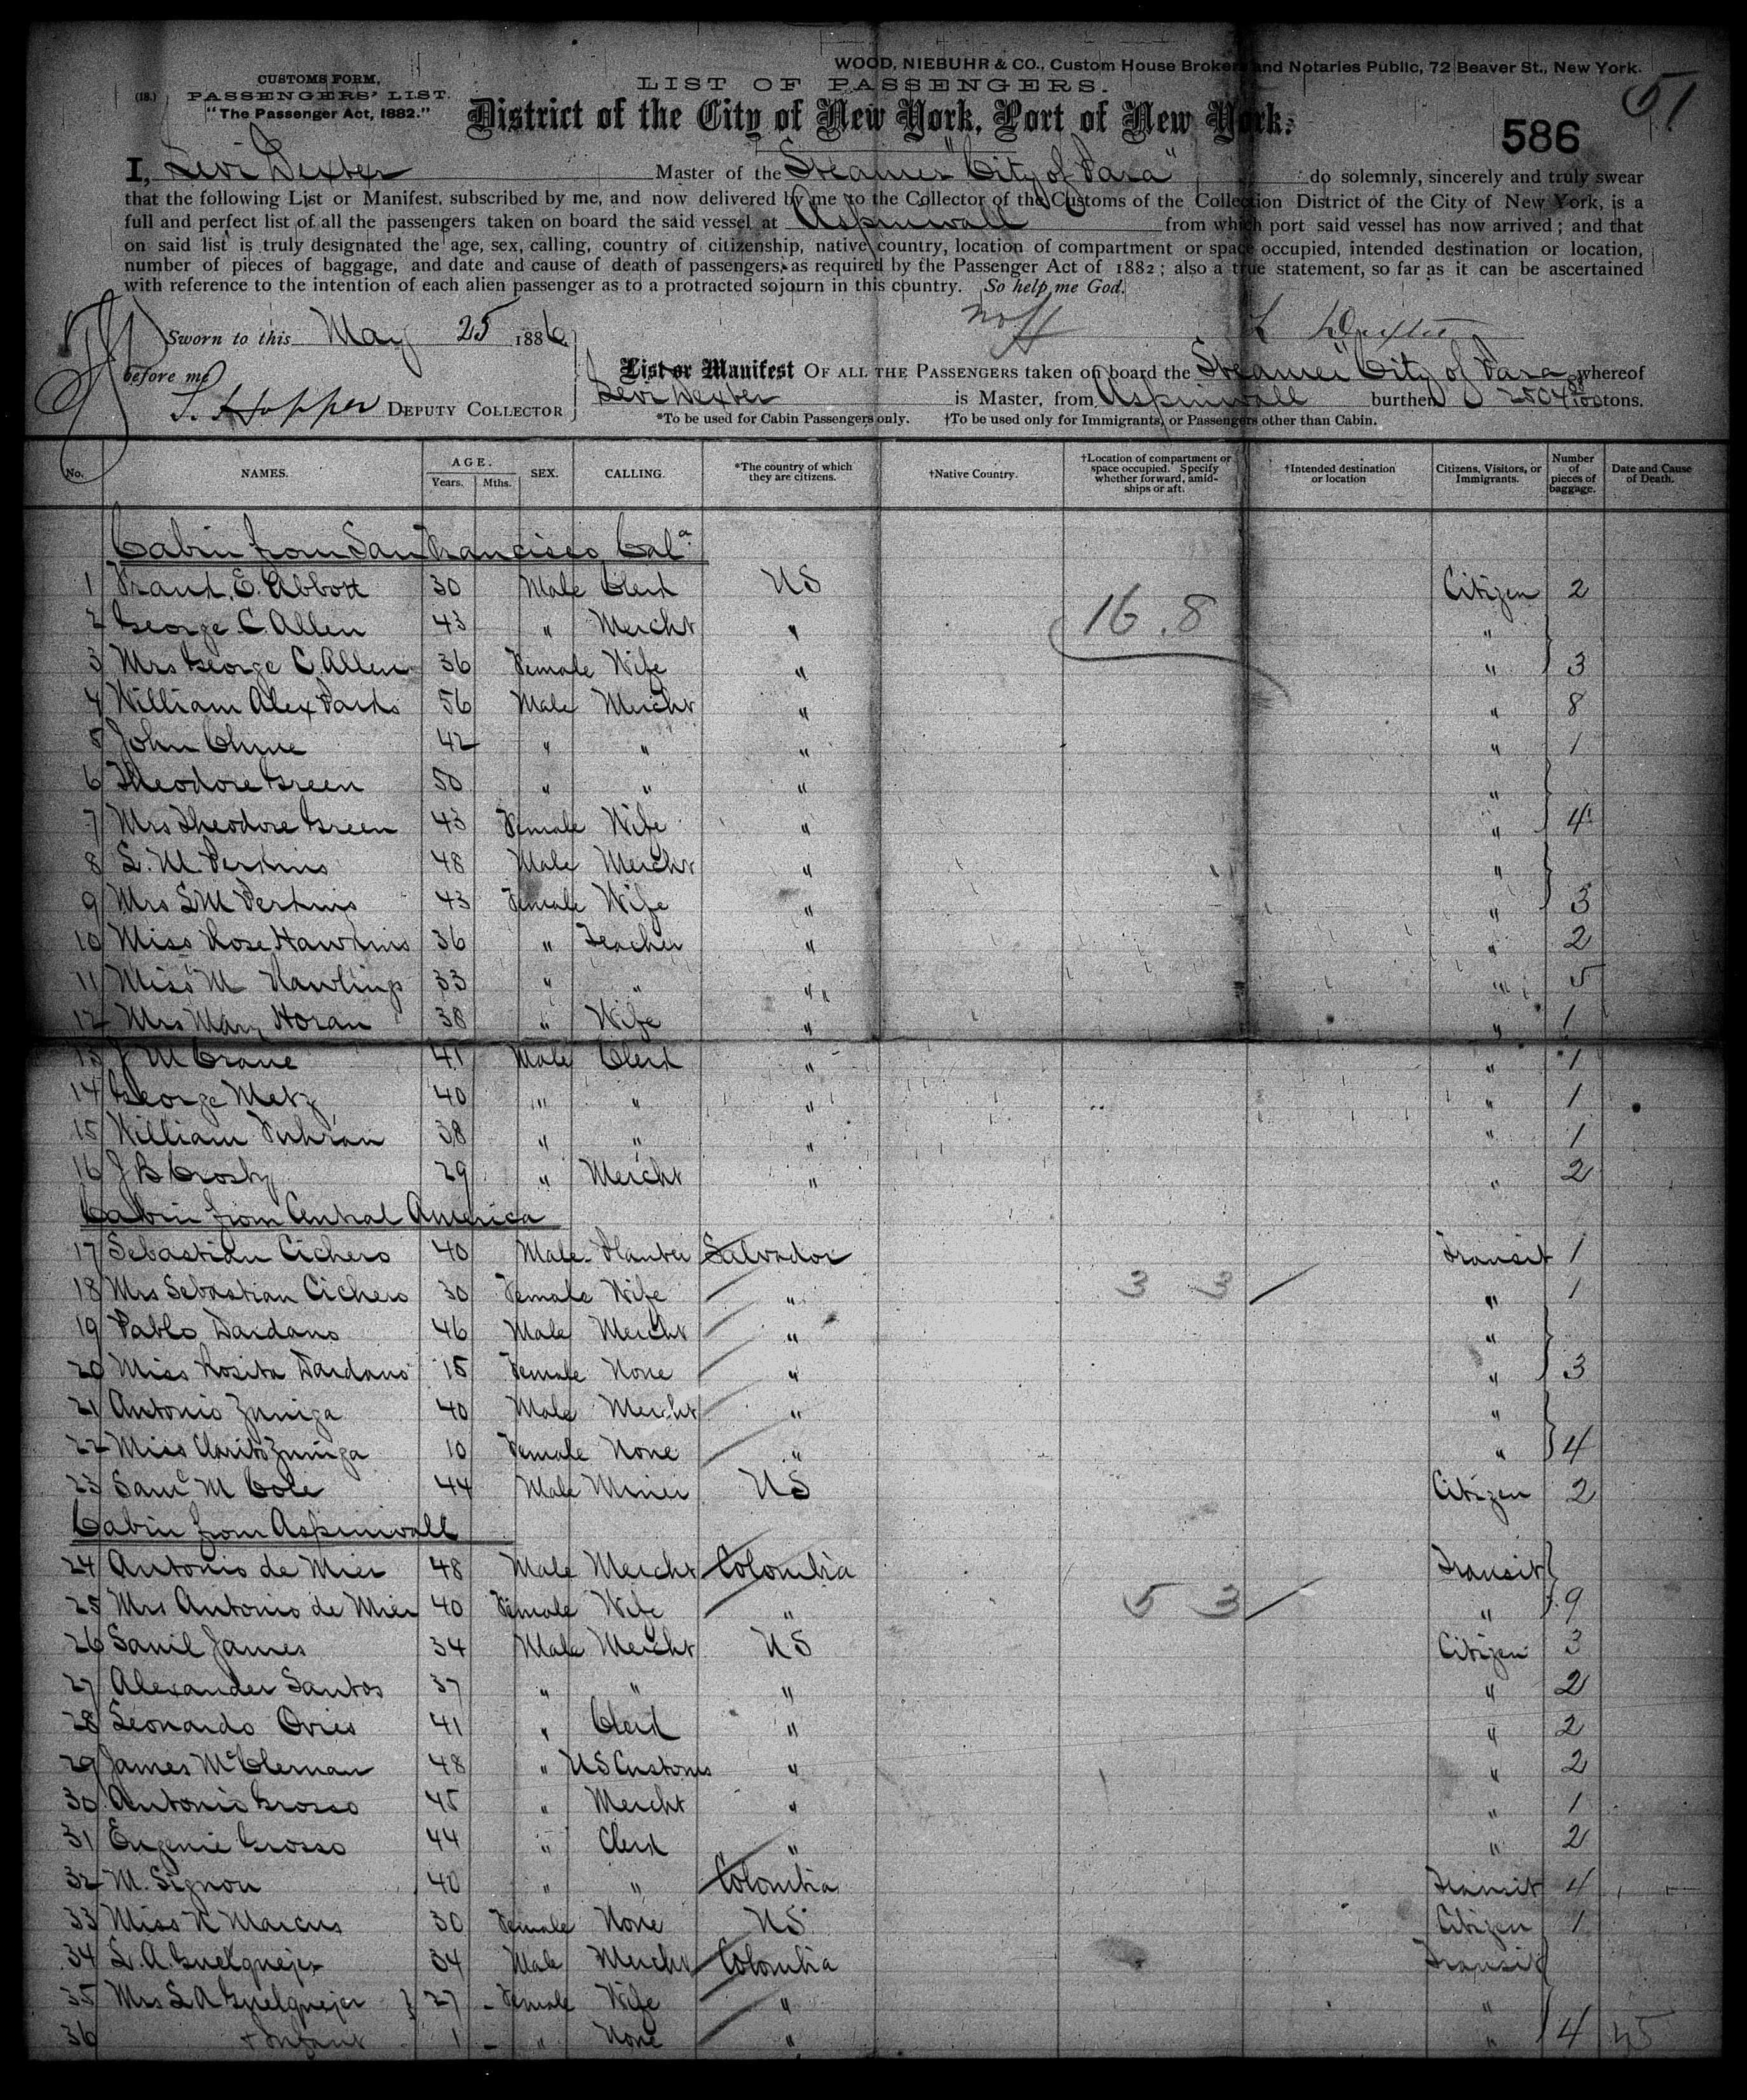 WOOD, NIEBUHR & CO., Custom House Brokers and Notaries Public, 72 Beaver St., New York.
(18.) CUSTOMS FORM.
PASSENGERS' LIST.
"The Passenger Act, 1882."
LIST OF PASSENGERS.
51
District of the City of New York, Port of New York.
586
I, Levi Dexter Master of the Steamer "City of Para" do solemnly, sincerely and truly swear
that the following List or Manifest, subscribed by me, and now delivered by me to the Collector of the Customs of the Collection District of the City of New York, is a
full and perfect list of all the passengers taken on board the said vessel at Aspinwall from which port said vessel has now arrived; and that
on said list is truly designated the age, sex, calling, country of citizenship, native country, location of compartment or space occupied, intended destination or location,
number of pieces of baggage, and date and cause of death of passengers, as required by the Passenger Act of 1882; also a true statement, so far as it can be ascertained
with reference to the intention of each alien passenger as to a protracted sojourn in this country. So help me God.
Sworn to this May 25 1886 L Dexter
before me
List or Manifest OF ALL THE PASSENGERS taken on board the Steamer "City of Para" whereof
Hopper DEPUTY COLLECTOR Levi Dexter is Master, from Aspinwall burthen 2504 tons.
*To be used for Cabin Passengers only. †To be used only for Immigrants, or Passengers other than Cabin.
No. NAMES. AGE. Years. Mths. SEX. CALLING. *The country of which they are citizens. †Native Country. †Location of compartment or space occupied. Specify whether forward, amidships or aft. †Intended destination or location Citizens, Visitors, or Immigrants. Number of pieces of baggage. Date and Cause of Death.
Cabin from San Francisco Cala
1 Frank. E. Abbott 30 Male Clerk US Citizen 2
2 George C. Allen 43 " Mercht " 16.8 "
3 Mrs George C. Allen 36 Female Wife " " 3
4 William Alex Parks 56 Male Mercht " " 8
5 John 42 " " " " 1
6 Theodore Green 50 " " " "
7 Mrs Theodore Green 43 Female Wife " " 4
8 L. M. Perkins 48 Male Mercht " "
9 Mrs L M Perkins 43 Female Wife " " 3
10 Miss Rose Hawkins 36 " Teacher " " 2
11 Miss M Rawlings 33 " " " " 5
12 Mrs Mary Horan 38 " Wife " " 1
13 J M Crane 41 Male Clerk " " 1
14 George Metz 40 " " " " 1
15 William 38 " " " " 1
16 J B Crosby 29 " Mercht " " 2
Cabin from Central America
17 Sebastian Cichero 40 Male Planter Salvador Transit 1
18 Mrs Sebastian Cichero 30 Female Wife " 3 3 " 1
19 Pablo Dardano 46 Male Mercht " "
20 Miss Rosita Dardano 15 Female None " " 3
21 Antonio Zuniga 40 Male Mercht " "
22 Miss Zuniga 10 Female None " " 4
23 Saml M Cole 44 Male Miner US Citizen 2
Cabin from Aspinwall
24 Antonio de Mier 48 Male Mercht Colombia Transit
25 Mrs Antonio de Mier 40 Female Wife " 5 3 " 9
26 James 34 Male Mercht US Citizen 3
27 Alexander Santos 37 " " " " 2
28 Leonardo 41 " Clerk " " 2
29 James McClernan 48 " US Customs " " 2
30 Antonio Grosso 45 " Mercht " " 1
31 Eugenie Grosso 44 " Clerk " " 2
32 M. Signon 40 " " Colombia Transit 4
33 Miss N Marcus 30 Female None US Citizen 1
34 L. A. 34 Male Mercht Colombia Transit
35 Mrs L A 27 Female Wife " "
36 + Infant 1 " None " " 4 45